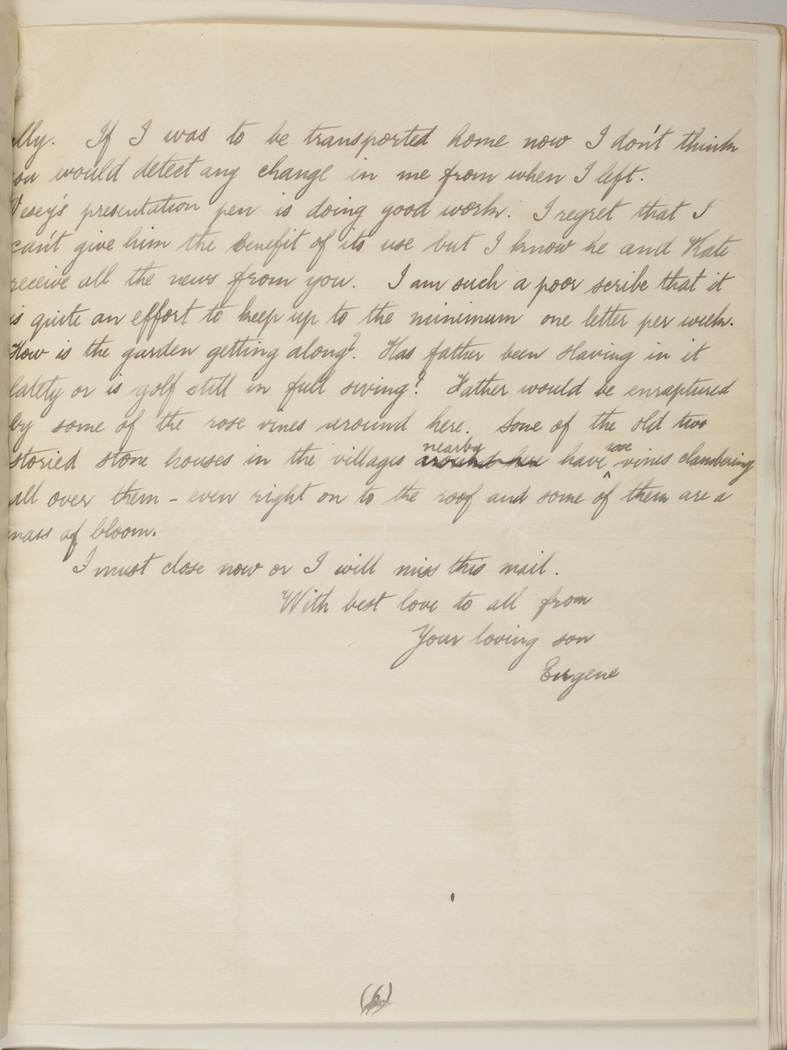 lly. If I was to be transported home now I don't think
you would detect any change in me from when I left.
Vesey's presentation pen is doing good work. I regret that I
can't give him the benefit of its use but I know he and Kate
receive all the news from you. I am such a poor scribe that it
is quite an effort to keep up to the minimum one letter per week.
How is the garden getting along? Has father been slaving in it
lately or is golf still in full swing? Father would be enraptured
by some of the rose vines around here. Some of the old two
storied stone houses in the villages around here nearby have rose vines clambering
all over them - even right on to the roof and some of them are a
mass of bloom.
I must close now or I will miss this mail.
With best love to all from
Your loving son
Eugene
(6)